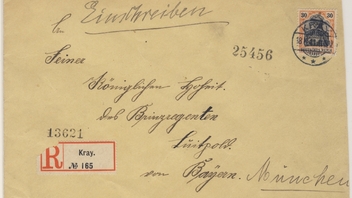 Einschreiben
30 30
25456
Seiner
Königlichen Hoheit
des Prinzregenten
Luitpold
von Bayern.
München
13621
R
Kray.
№ 165